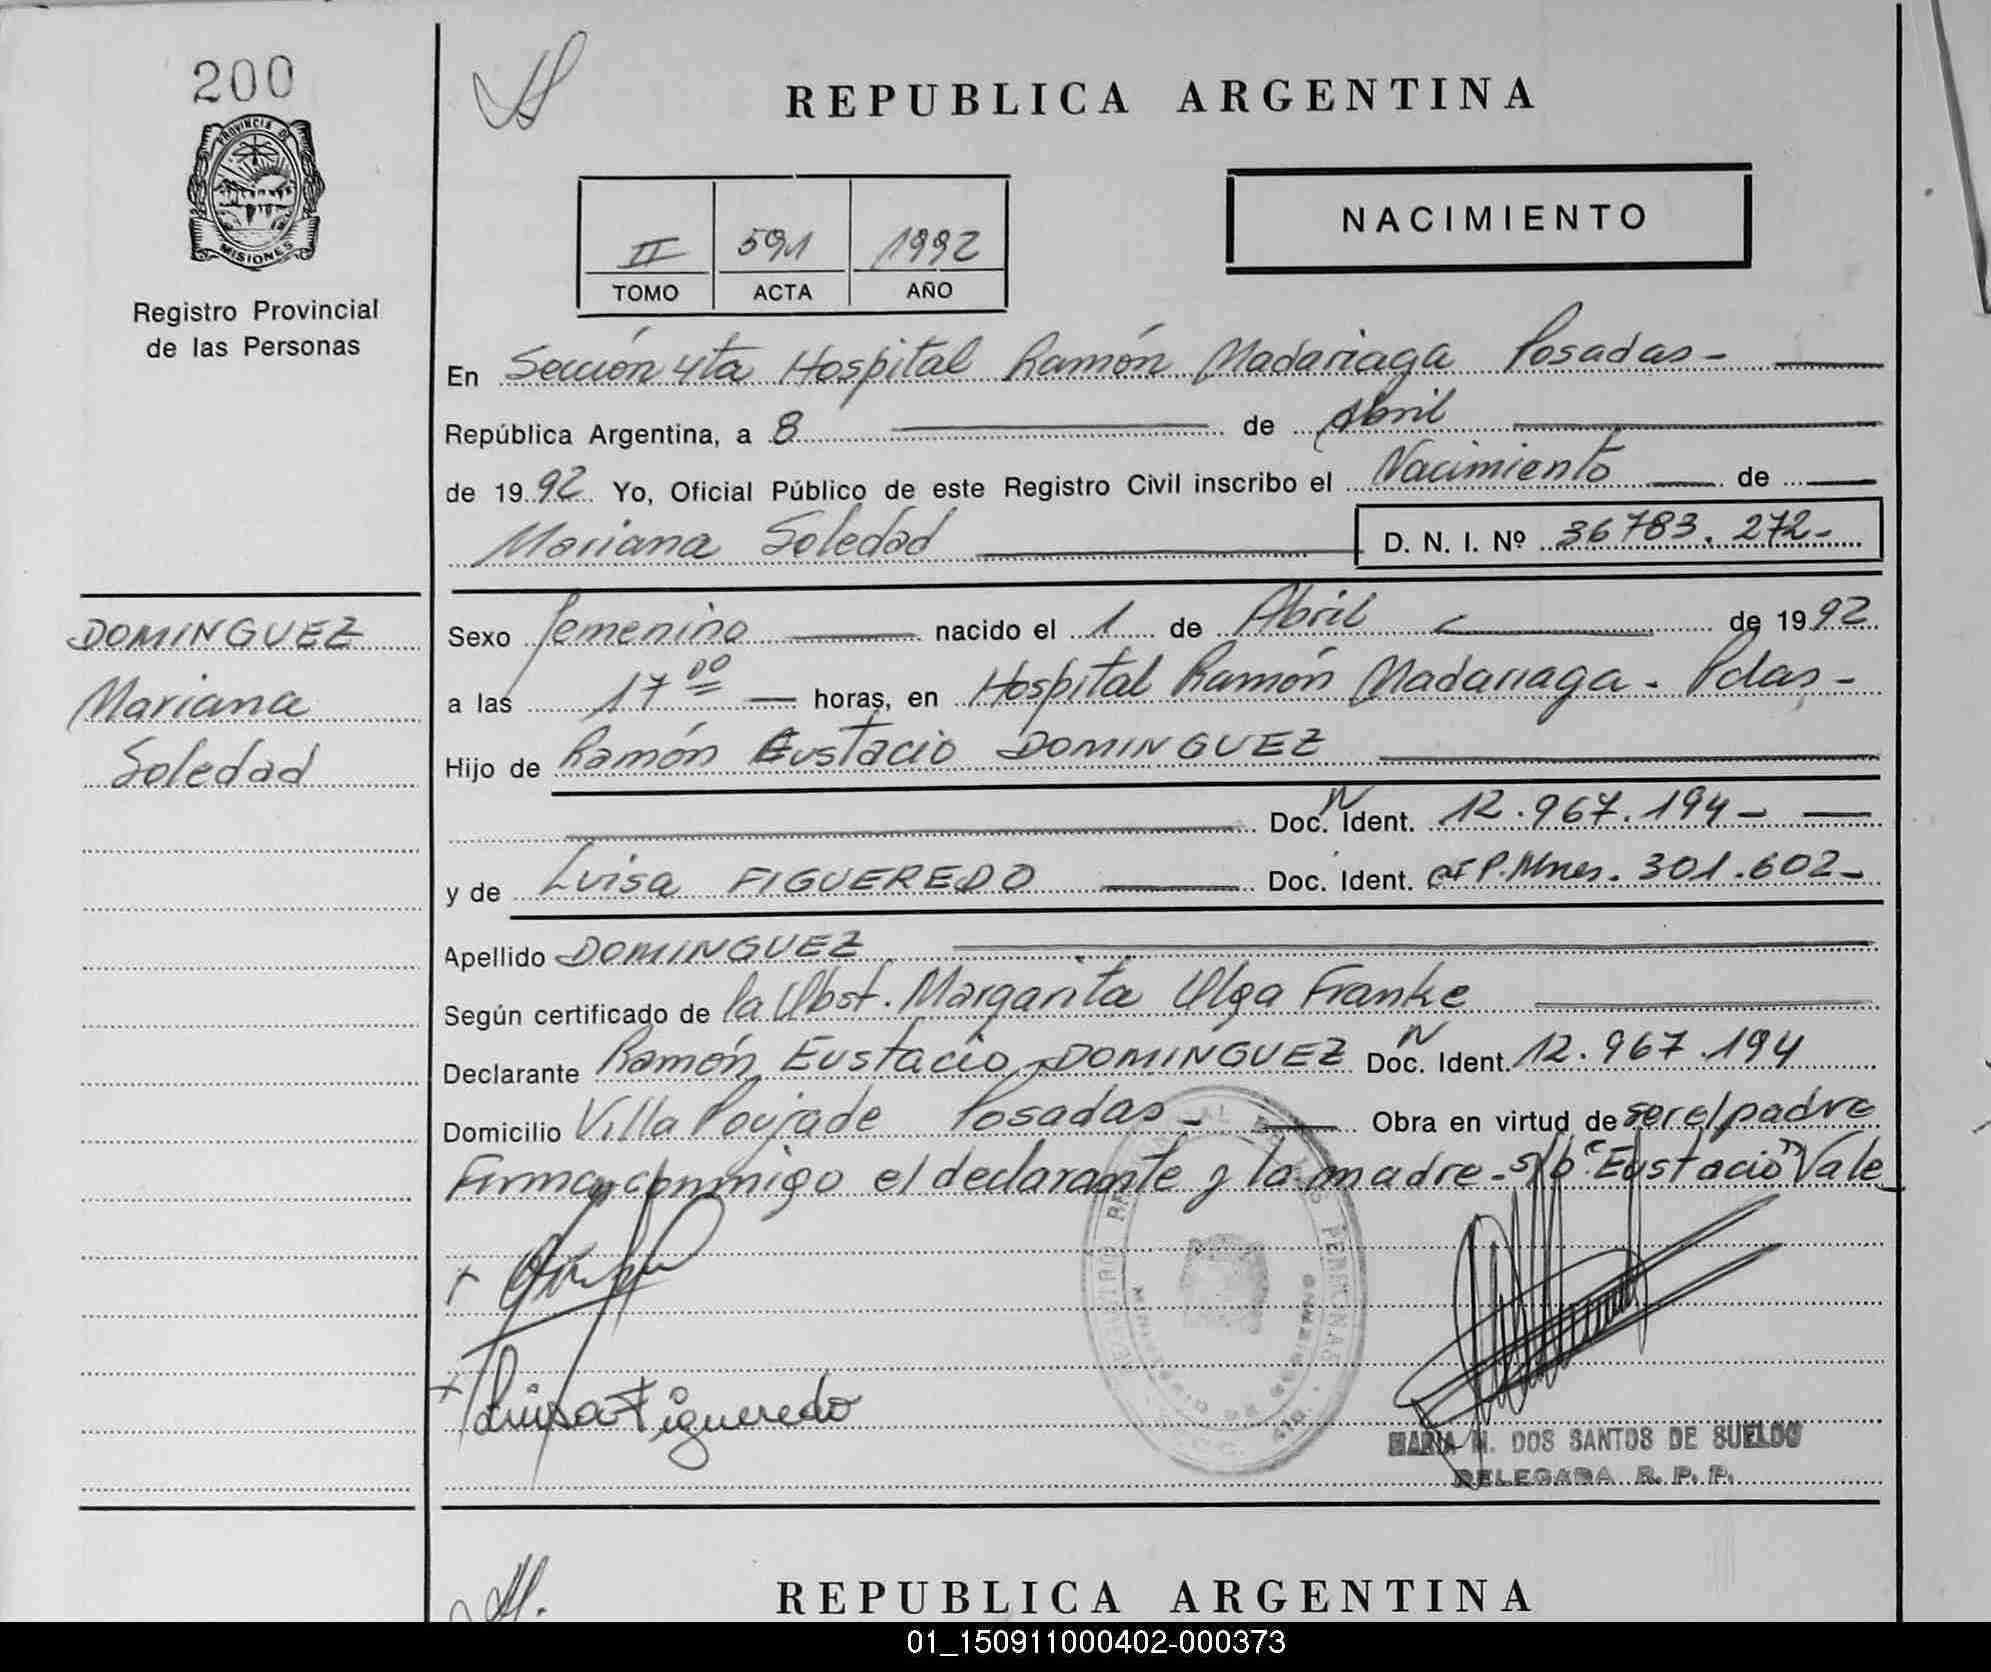 200
PROVINCIA DE
MISIONES
Registro Provincial
de las Personas
DOMINGUEZ
Mariana
Soledad
REPUBLICA ARGENTINA
II 591 1992
TOMO ACTA AÑO
NACIMIENTO
En Sección 4ta Hospital Ramón Madariaga Posadas-
República Argentina, a 8 de Abril
de 1992 Yo, Oficial Público de este Registro Civil inscribo el Nacimiento de
Mariana Soledad D. N. I. Nº 36783.272-
Sexo Femenino nacido el 1 de Abril de 1992
a las 17 00 horas, en Hospital Ramón Madariaga - Pdas-
Hijo de Ramón Eustacio DOMINGUEZ
Doc. N Ident. 12.967.194-
y de Luisa FIGUEREDO Doc. Ident. P. Mnes. 301.602-
Apellido DOMINGUEZ
Según certificado de la Obst. Margarita Olga Franke
Declarante Ramón Eustacio DOMINGUEZ Doc. N Ident. 12.967.194
Domicilio Villa Poujade Posadas- Obra en virtud de ser el padre
Firman conmigo el declarante y la madre - s/b "Eustacio" Vale
Luisa Figueredo
REGISTRO PROVINCIAL DE LAS PERSONAS
MINISTERIO DE GOBIERNO
MARIA M. DOS SANTOS DE SUELDO
DELEGADA R. P. P.
REPUBLICA ARGENTINA
01_150911000402-000373